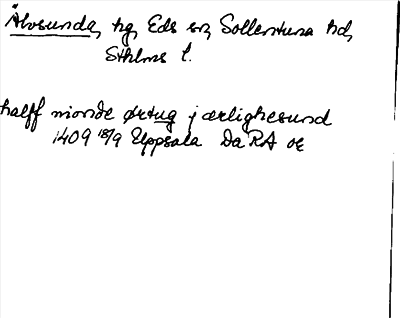 Älvsunda, hg, Eds sn, Sollentuna hd,
Sthlms l.
halff nionde ørtug j ærlighesund
1409 18/9 Uppsala DaRA or